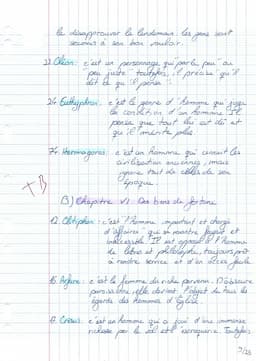 le désapprouver le lendemain. Les gens sont
soumis à son bon vouloir.
c'est un personnage qui parle peu au
peu juste toutefois, il précise qu'il
dit ce qu'il pense
24. Euthyphron : c'est le genre d'homme qui juge
la condition d'un homme Il
pense que tout lui est dû et
qu'il mérite plus.
74. Hermagoras : c'est un homme qui connaît les
civilisations anciennes, mais
ignore tout de celles de son
époque.
+B
B) Chapitre VI Des biens de fortune
12. Clitiphon : c'est l'homme important et chargé
d'affaires qui se montre
inaccessible. Il est opposé à l'homme
de lettres et philosophe, toujours prêt
à rendre service et d'un accès facile
16. Arfure : c'est la femme du riche parvenu. D'obscure
paroissienne, elle devient l'objet de tous les
égards des hommes d'Eglise.
17. Crésus : c'est un homme qui a joui d'une immense
richesse par le vol et l'escroquerie. Toutefois